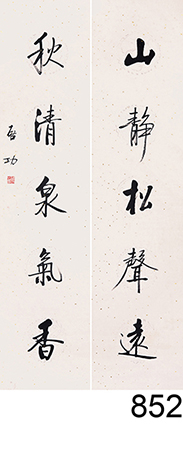 山靜松聲遠
秋清泉氣香
啓功
852